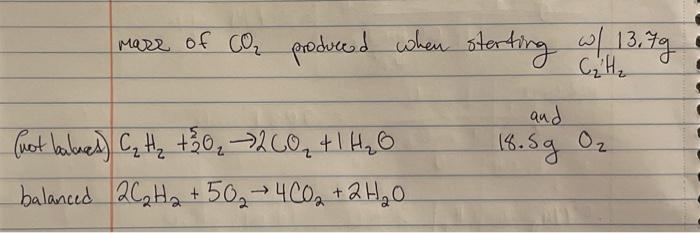 mass of CO₂ produced when starting w/ 13.7g
C₂H₂
and
(not balanced) C₂H₂ + 5/2 O₂ → 2CO₂ + 1 H₂O 18.5g O₂
balanced 2C₂H₂ + 5O₂ → 4CO₂ + 2H₂O